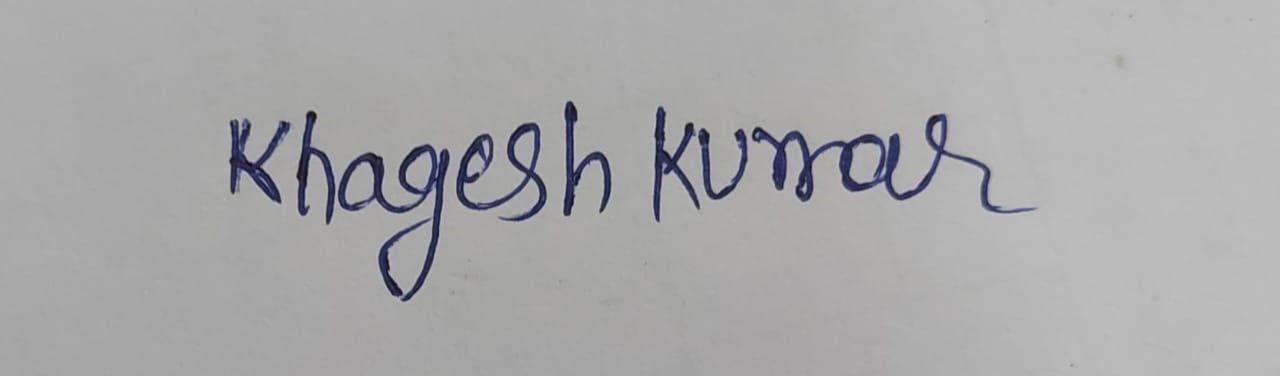 Khagesh Kumar